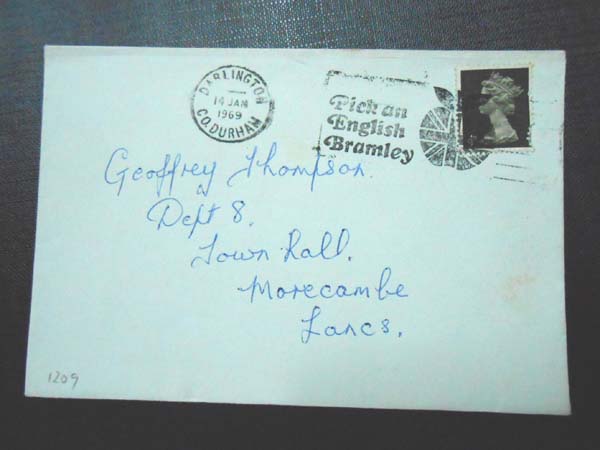 DARLINGTON
14 JAN
1969
CO. DURHAM
Pick an
English
Bramley
Geoffrey Thompson.
Dept 8.
Town Hall.
Morecambe
Lancs.
1209